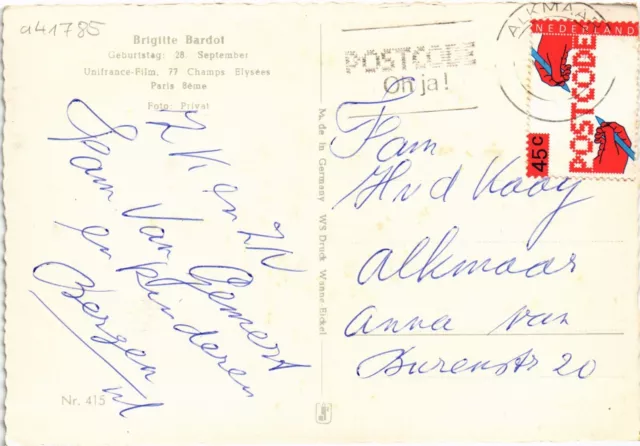 a41785
Brigitte Bardot
Geburtstag: 28. September
Unifrance-Film, 77 Champs Elysées
Paris 8ème
Foto: Privat
ZK en ZN
Fam Van Gemert
en kinderen
Bergen nh
Nr. 415
Made in Germany WS-Druck Wanne-Eickel
POSTCODE
Oh ja!
ALKMAAR
NEDERLAND
POSTCODE
45c
Fam
Hvd Kooy
Alkmaar
Anna van
Burenstr 20